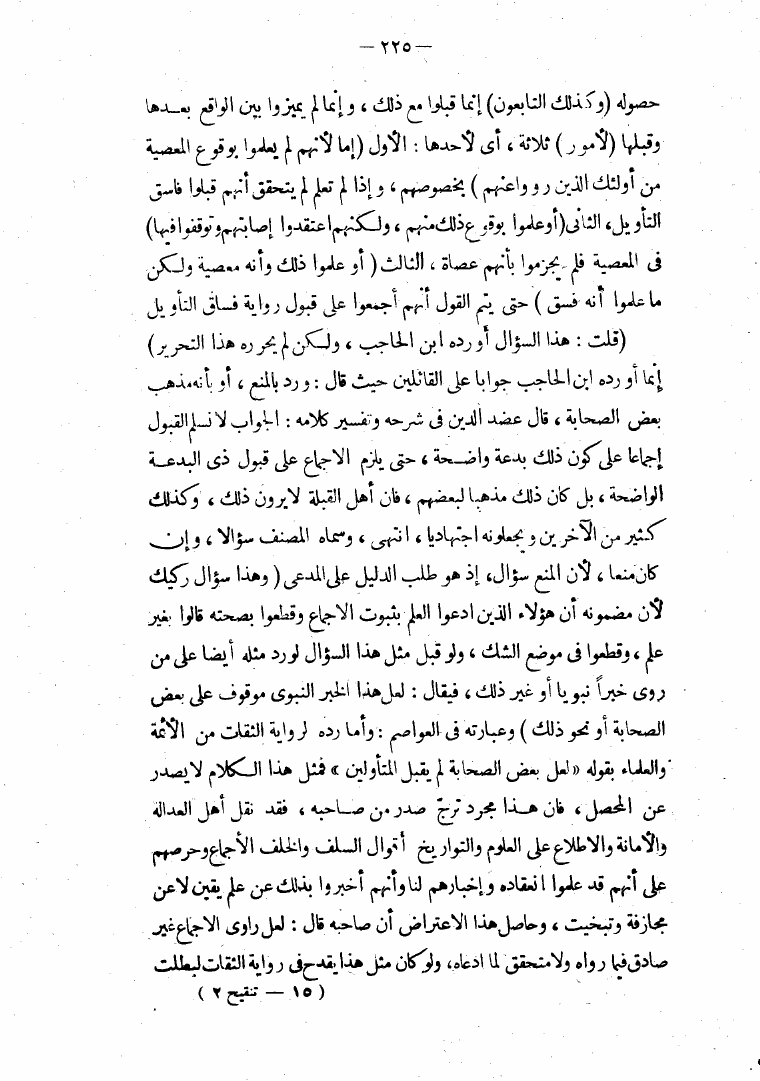 — ٢٢٥ —
حصوله (وكذلك التابعون) إنما قبلوا مع ذلك ، وإنما لم يميزوا بين الواقع بعـدها
وقبلها (لأمور) ثلاثة ، أى لأحدها : الأول (إما لأنهم لم يعلموا بوقوع المعصية
من أولئك الذين رووا عنهم) بخصوصهم ، وإذا لم تعلم لم يتحقق أنهم قبلوا فاسق
التأويل، الثانى (أو علموا بوقوع ذلك منهم ، ولكنهم اعتقدوا إصابتهم وتوقفوا فيها)
فى المعصية فلم يجزموا بأنهم عصاة ، الثالث (أو علموا ذلك وأنه معصية ولكن
ما علموا أنه فسق) حتى يتم القول أنهم أجمعوا على قبول رواية فساق التأويل
(قلت : هذا السؤال أورده ابن الحاجب ، ولكن لم يحرره هذا التحرير)
إنما أورده ابن الحاجب جوابا على القائلين حيث قال : ورد بالمنع ، أو بأنه مذهب
بعض الصحابة ، قال عضد الدين فى شرحه وتفسير كلامه : الجواب لا نسلم القبول
إجماعا على كون ذلك بدعة واضـحة ، حتى يلزم الاجماع على قبول ذى البدعـة
الواضحة ، بل كان ذلك مذهبا لبعضهم ، فان أهل القبلة لا يرون ذلك ، وكذلك
كثير من الآخرين ويجعلونه اجتهاديا ، انتهى ، وسماه المصنف سؤالا ، وإن
كان منعا ، لأن المنع سؤال، إذ هو طلب الدليل على المدعى (وهذا سؤال ركيك
لأن مضمونه أن هؤلاء الذين ادعوا العلم بثبوت الاجماع وقطعوا بصحته قالوا بغير
علم ، وقطعوا فى موضع الشك ، ولو قبل مثل هذا السؤال لورد مثله أيضا على من
روى خبراً نبويا أو غير ذلك ، فيقال : لعل هذا الخبر النبوى موقوف على بعض
الصحابة أو نحو ذلك) وعبارته فى العواصم : وأما رده لرواية الثقات من الأئمة
والعلماء بقوله «لعل بعض الصحابة لم يقبل المتأولين» فمثل هذا الـكلام لا يصدر
عن المحصل ، فان هـذا مجرد ترجّ صدر من صـاحبه ، فقد نقل أهل العدالة
والأمانة والاطلاع على العلوم والتواريخ أقوال السلف والخلف الأجماع وحرصهم
على أنهم قد علموا انعقاده وإخبارهم لنا وأنهم أخبروا بذلك عن علم يقين لا عن
مجازفة وتبخيت ، وحاصل هذا الاعتراض أن صاحبه قال : لعل راوى الاجماع غير
صادق فيما رواه ولا متحقق لما ادعاه، ولو كان مثل هذا يقدح فى رواية الثقات لبطلت
(١٥ — تنقيح ٢)